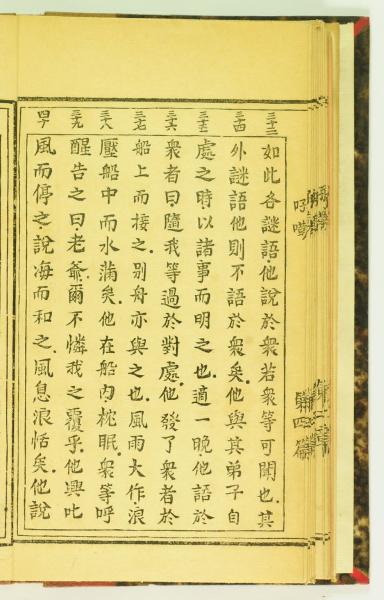 三十三 如此各謎語.他說於衆若衆等可聞也.其
三十四 外謎語他則不語於衆矣.他與其弟子自
三十五 處之時.以諸事而明之也.適一晚他語於
三十六 衆者曰.隨我等過於對處.他發了衆者於
三十七 船上而接之.別舟亦與之也.風雨大作.浪
三十八 壓船中而水滿矣.他在船內枕眠.衆等呼
三十九 醒告之曰.老爺.爾不憐我之覆乎.他興叱
四十 風而停之.說海而和之.風息浪恬矣.他說